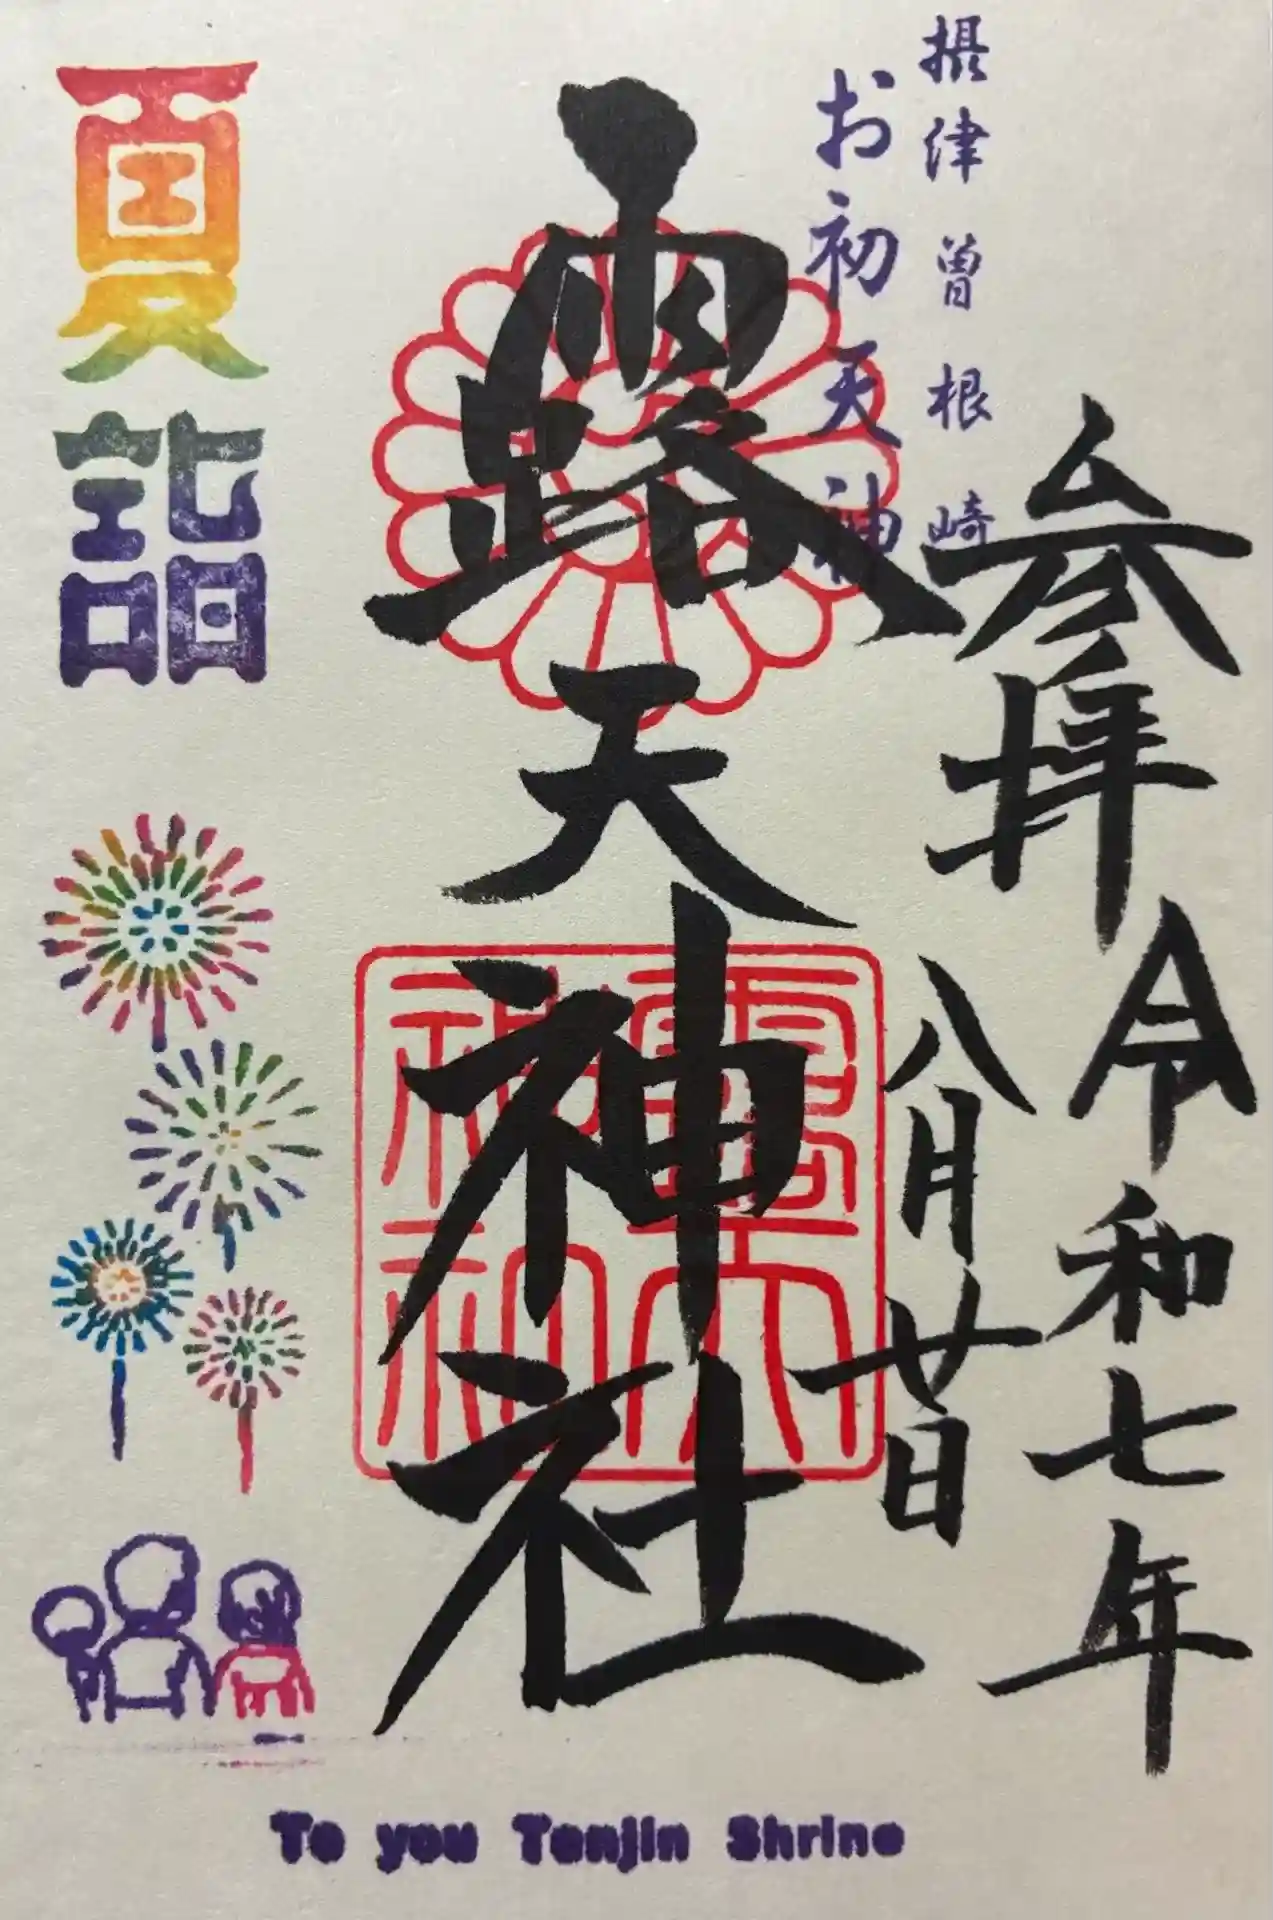 摂津曽根崎
お初天神
参拝
令和七年
八月廿日
露天神社
露天
神社
夏詣
To you Tenjin Shrine